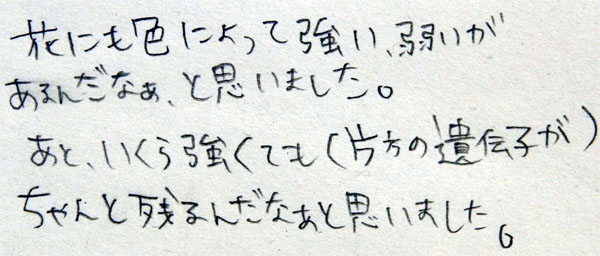 花にも色によって強い、弱いが
あるんだなぁ、と思いました。
あと、いくら強くても(片方の遺伝子が)
ちゃんと残るんだなぁと思いました。